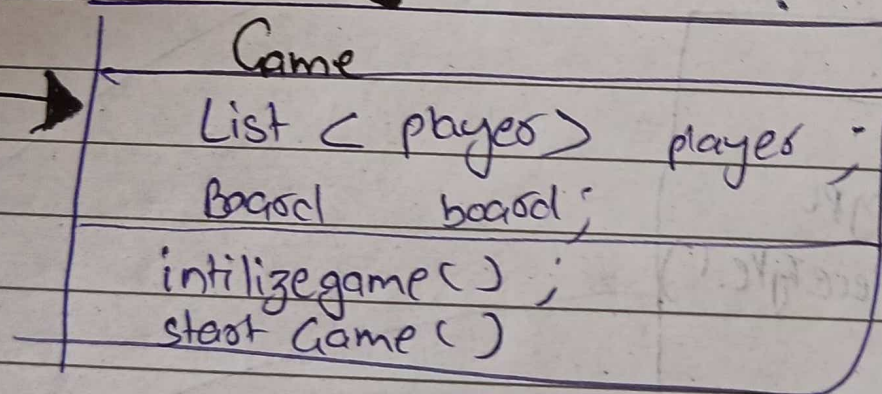 Game
List < player> player ;
Board board;
intilizegame() ;
start Game()